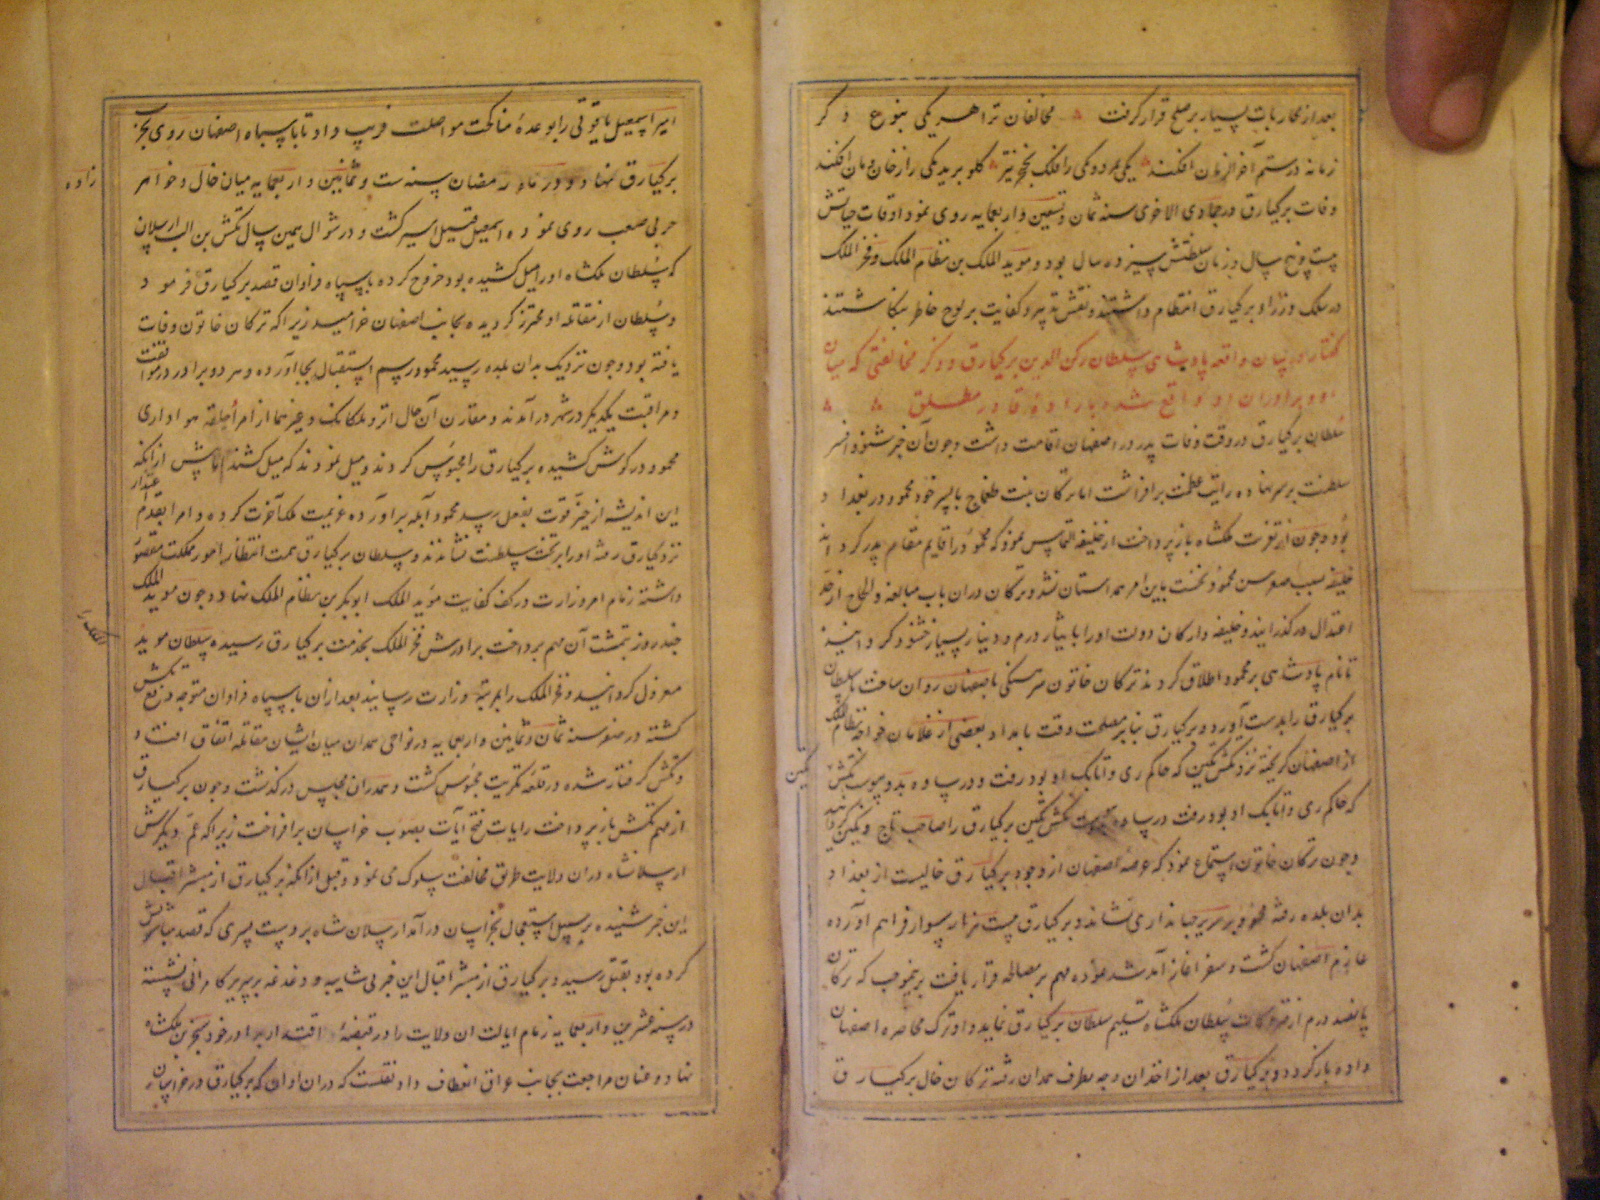 بعد از محاربات بسیار بر صلح قرار گرفت مخالفان ترا هر یکی بنوع دکر
زمانه درستم آخر الزمان افکند یکی را فلک بخنجر تیز گلو برید یکی را ز خان و مان افکند
وفات برکیارق در جمادی الاخری سنه ثمان و تسعین و اربعمایه روی نمود اوقات حیاتش
بیست و پنج سال و زمان سلطنتش سیزده سال بود و موید الملک بن نظام الملک و فخر الملک
در سلک وزراء برکیارق انتظام داشتند و نقش تدبیر و کفایت بر لوح خاطر
گفتار در بیان واقعه پادشاهی سلطان رکن الدین برکیارق و ذکر مخالفتی که میان
او و برادران او واقع شد بارادهٔ قادر مطلق
سلطان برکیارق در وقت وفات پدر در اصفهان اقامت داشت و جون آن خبر شنود افسر
سلطنت بر سر نهاده رایت عظمت برافراشت اما ترکان بنت طغماج با پسر خود محمود در بغداد
بود و جون از تعزیت ملکشاه باز پرداخت از خلیفه التماس نمود که محمود را قایم مقام پدر کرداند
خلیفه بسبب صغر سن محمود نخست باین امر همداستان نشد و ترکان دران باب مبالغه و الحاح از حد
اعتدال درکذرانید و خلیفه و ارکان دولت او را بایثار درم و دینار بسیار خشنود کردانید
تا نام پادشاهی بر محمود اطلاق کردند ترکان خاتون باصفهان روان ساخت تا سلطان
برکیارق را بدست آورد و برکیارق بنابر مصلحت وقت بامداد بعضی از غلامان خواجه نظام الملک
از اصفهان کریخته نزد کمش تکین که حاکم ری و اتابک او بود رفت و در ساوه بدو پیوست
که حاکم ری و اتابک او بود رفت در ساوه کمش تکین برکیارق را صاحب تاج و نکین کردانید
و جون ترکان خاتون استماع نمود که عرصهٔ اصفهان از وجود برکیارق خالیست از بغداد
بدان بلده رفته محمود بر سریر جهانداری نشاند و برکیارق بیست هزار سوار فراهم آورده
عازم اصفهان کشت و سفرا آغاز آمد شد نموده مهم بر مصالحه قرار یافت بر نموجب که ترکان
پانصد درم از متروکات سلطان ملکشاه تسلیم سلطان برکیارق نماید و او ترک محاصره اصفهان
داده باز کردد و برکیارق بعد از اخذ آن وجه بطرف همدان رفته ترکان خال برکیارق
امیر اسمعیل یاقوتی را بوعدهٔ مناکحت و مواصلت فریب داد تا با سپاه اصفهان روی بحرب
برکیارق نهاد و در ماه رمضان سنه ست و ثمانین و اربعمایه میان خال و خواهر
زاده
حربی صعب روی نموده اسمعیل قتیل اسیر کشت و در شوال همین سال تکش بن الب ارسلان
که سلطان ملکشاه او را میل کشیده بود خروج کرده با سپاه فراوان قصد برکیارق فرمود
و سلطان از مقاتله او محترز کردیده بجانب اصفهان خرامید زیرا که ترکان خاتون وفات
یافته بود و جون نزدیک بدان بلده رسید محمود رسم استقبال بجا آورده و هر دو برادر در موافقت
و مراقبت یکدیکر در شهر درآمدند و مقارن آن حال انر و بلکابک و غیرهما از امرا حلقه هواداری
محمود در کوش کشیده برکیارق را محبوس کردند و میل نمودند که میل کشند اما پیش از آنکه
این اندیشه از حیز قوت بفعل رسد محمود آبله برآورده عزیمت ملک آخرت کرد و امرا بقدم اعتذار
نزد برکیارق رفته او را بر تخت سلطنت نشاندند و سلطان برکیارق همت بر انتظام امور مملکت مقصور
داشته زمام امر وزارت در کف کفایت موید الملک ابوبکر بن نظام الملک نهاد و جون موید الملک
جند روز بتمشیت آن مهم پرداخت برادرش فخر الملک بخدمت برکیارق رسیده سلطان موید
الملک را
معزول کردانید و فخر الملک را بمرتبه وزارت رسانید بعد ازان با سپاه فراوان متوجه دفع تکش
کشته در صفر سنه ثمان و ثمانین و اربعمایه در نواحی همدان میان ایشان مقاتله اتفاق افتاد
و تکش کرفتار شده در قلعه تکریت محبوس کشت و همدران مجلس درکذشت و جون برکیارق
از مهم تکش باز پرداخت رایات فتح آیات بصوب خراسان برافراخت زیرا که عم دیکرش
ارسلانشاه دران ولایت طریق مخالفت سلوک می نمود و قبل از آنکه برکیارق از مبشر اقبال
این خبر شنیده بر سبیل استعجال بخراسان درآمد ارسلان شاه بر دست پسری که قصد مباشرتش
کرده بود بقتل رسید و برکیارق از مبشر اقبال این خبر بی شایبه و دغدغه بر سریر کامرانی نشسته
در سنه عشرین و اربعمایه زمام ایالت ان ولایت را در قبضه اقتدار برادر خود سنجر بن ملکشاه
نهاد و عنان مراجعت بجانب عراق انعطاف داد نقلست که دران اوان که برکیارق در خراسان